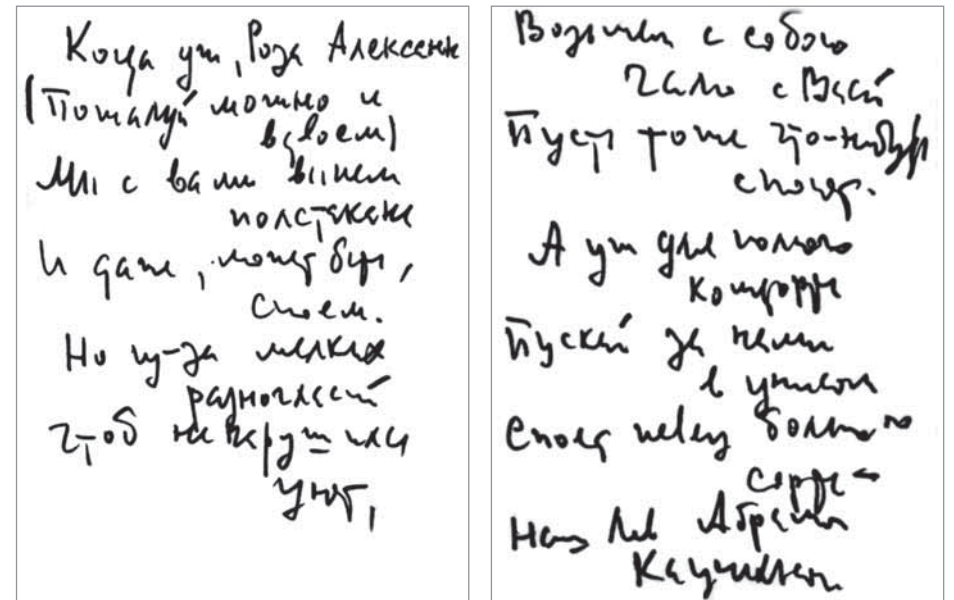 Когда уж, Роза Алексевне
(Пожалуй можно и
вдвоем)
Мы с вами выпьем
полстакане
И даже, может быть,
споем.
Но из-за мелких
разногласий
Чтоб не нарушили
уют,
Возьмем с собою
Галю с Васей
Пусть тоже что-нибудь
споют.
А уж для полного
комфорта
Пускай за нами
в унисон
Споет певец большого
сорта
Наш Лев Абрамыч
Кацнельсон.